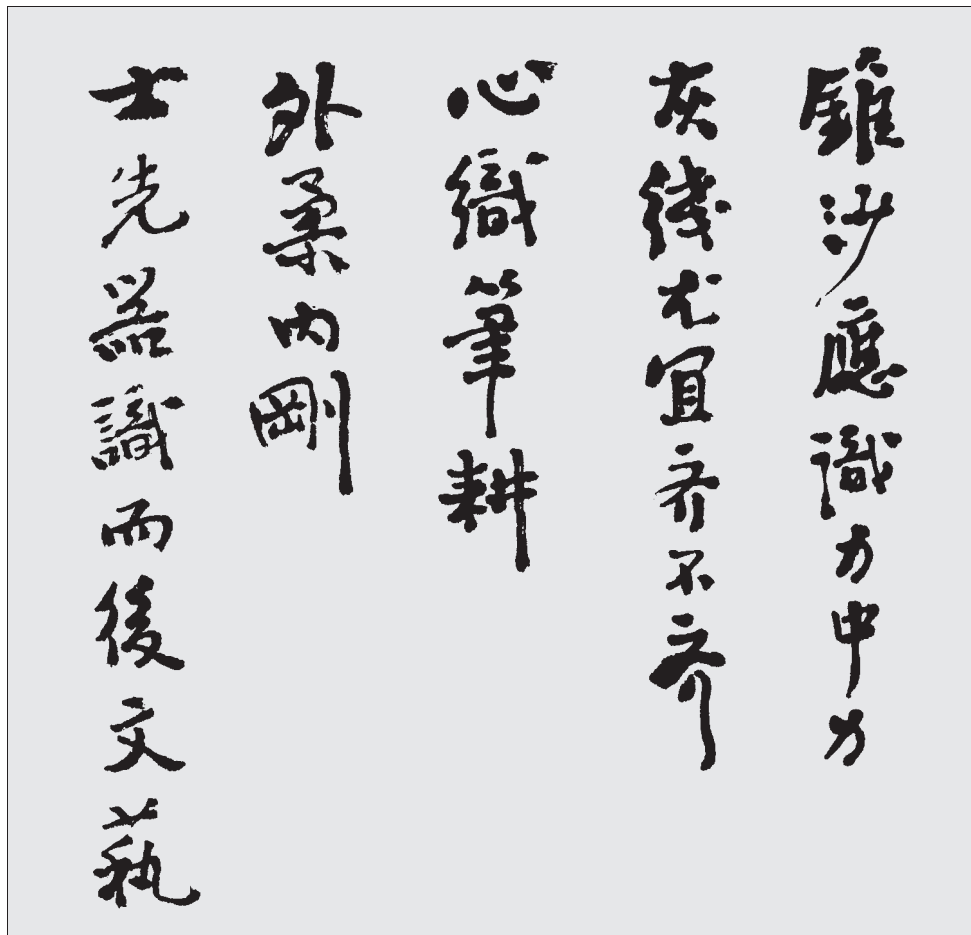 錐沙應識力中力
灰綫尤宜齐不齐
心織筆耕
外柔内剛
士先器識而後文蓺